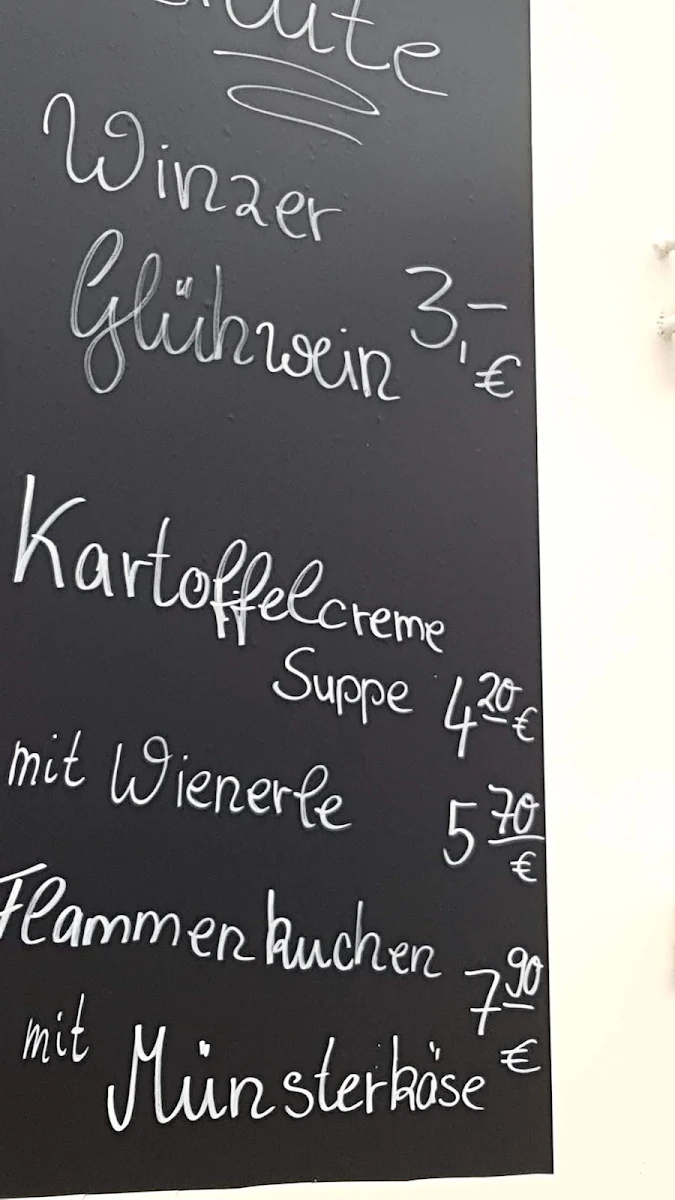 Heute
Winzer
Glühwein 3,- €
Kartoffelcreme
Suppe 4 20 €
mit Wienerle 5 70 €
Flammenkuchen 7 90 €
mit Münsterkäse